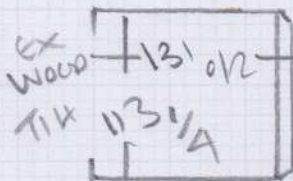 EX
WOOD 131 0/2
T/H 113 1/4